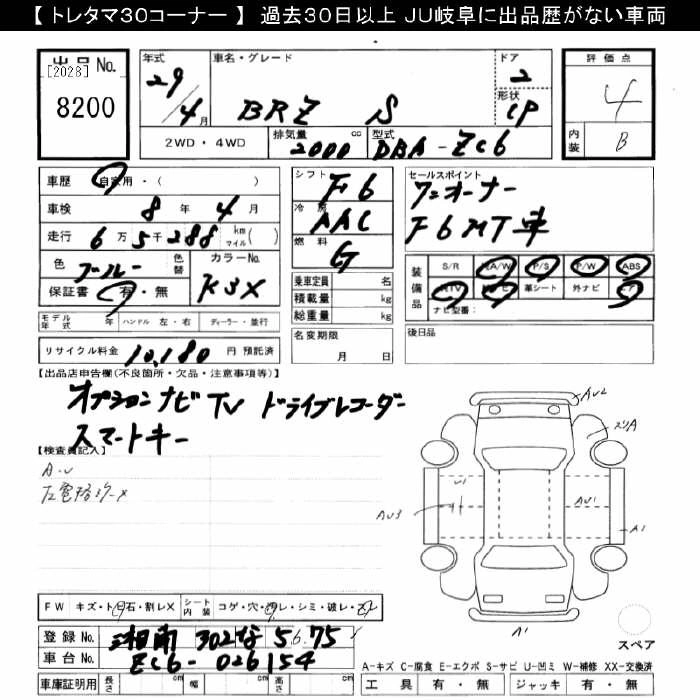 【 トレタマ30コーナー 】 過去30日以上 JU岐阜に出品歴がない車両
出品 No.
[2028]
8200
年式
29/4月
車名・グレード
BRZ S
ドア
2
形状
CP
2WD・4WD
排気量 2000 cc
型式 DBA-ZC6
評価点
4
内装 B
車歴 自家用・( )
車検 8年 4月
走行 6万 5千 288 km マイル ( )
色 ブルー 色替
カラーNo. K3X
保証書 有・無
シフト F6
冷房 AAC
燃料 G
乗車定員 名
積載量 kg
総重量 kg
名変期限
月 日
セールスポイント
ワンオーナー
F6MT車
装備品
S/R A/W P/S P/W ABS
TV ナビ 革シート 外ナビ エアB
ナビ型番:
後日品
モデル年式 年 ハンドル 左・右 ディーラー・並行
リサイクル料金 10,180 円 預託済
【出品店申告欄(不良箇所・欠品・注意事項等)】
オプションナビ TV ドライブレコーダー
スマートキー
【検査員記入】
A.U
AU2
A1
U1
AU1
AU3
A1
FW キズ・ト・石・割レX シート内装 コゲ・穴・スレ・シミ・破レ・
登録 No. 湘南 302 な 5675
車台 No. ZC6-026154
車庫証明用 長さ cm 幅 cm 高さ cm
スペア
A-キズ C-腐食 E-エクボ S-サビ U-凹ミ W-補修 XX-交換済
工具 有・無 ジャッキ 有・無